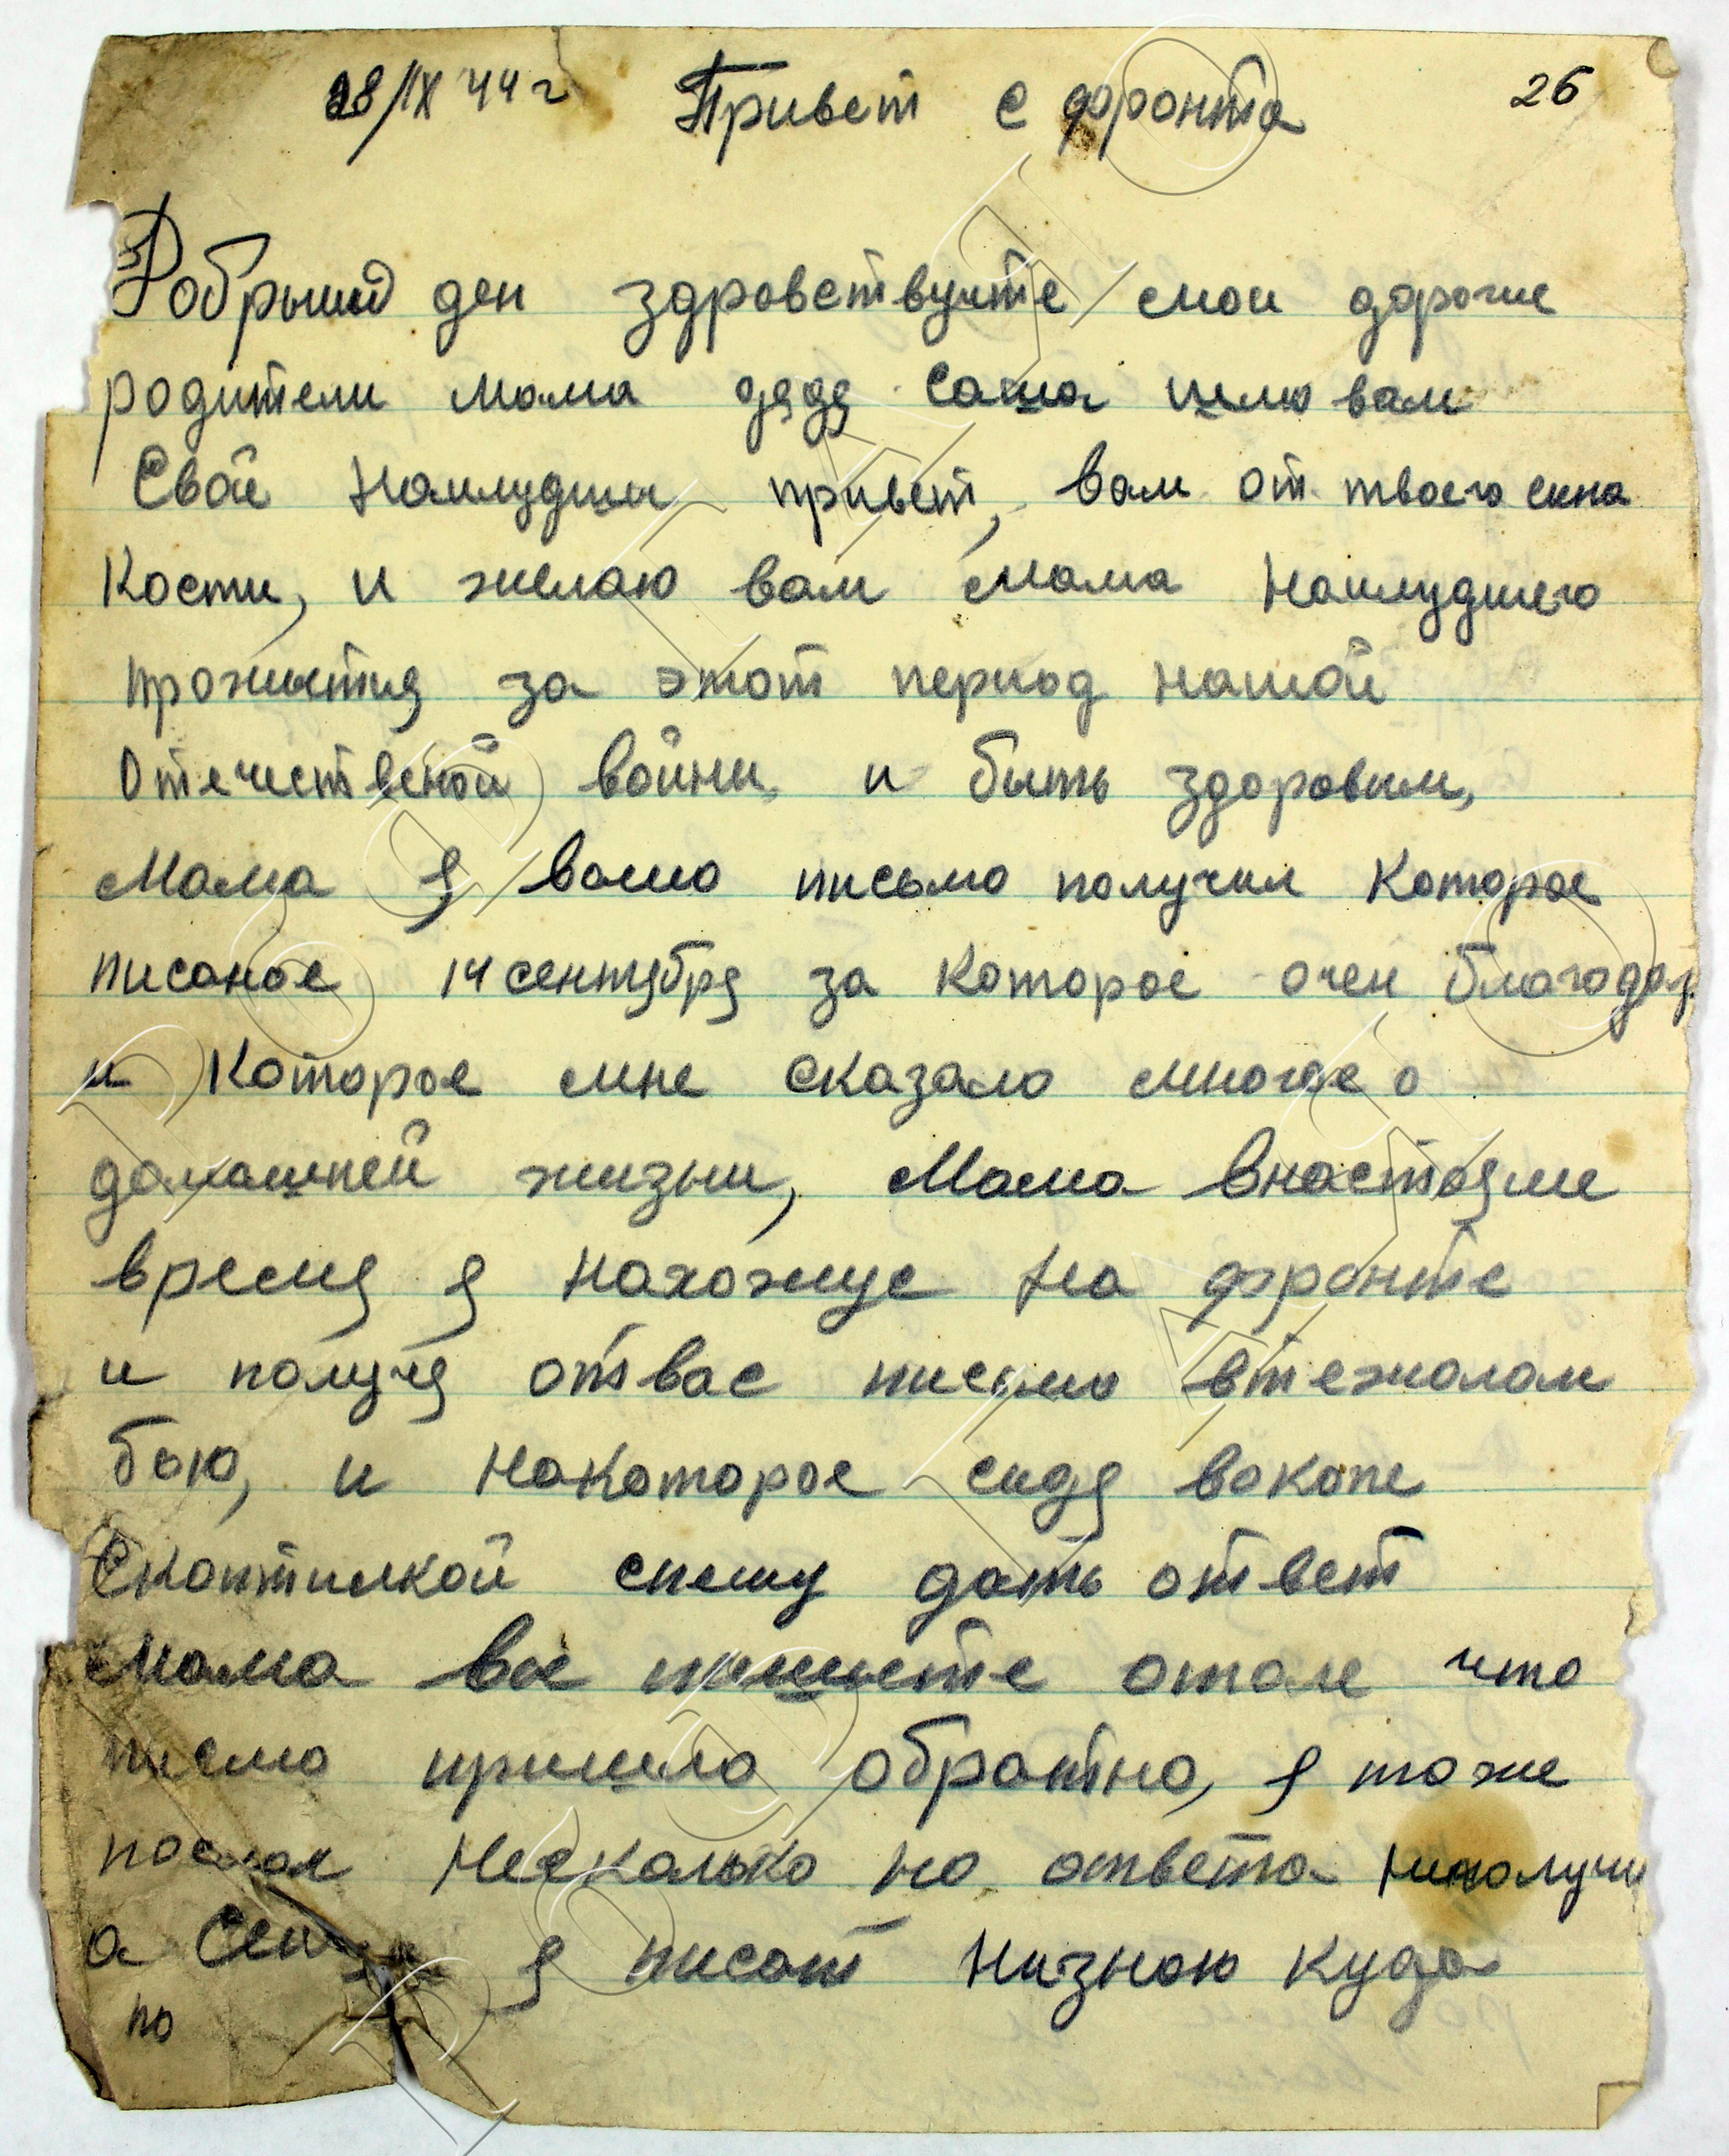 28/IX 44 г Привет с фронта 26
Добрый ден здравствуите мои дороги
родители мама дядя Саша шлю вам
Свой Наилудши привет, вам от твоего сина
Кости, и желаю вам мама Наилудшего
прожытия за этот период нашой
Отечественой войни и быть здоровим,
Мама я вашо письмо получил Которое
писаное 14 сентября за Которое очен благодар
и Которое мне сказало многое о
домашней жизни, Мама внастояше
время я нахожусе На фронте
и получя отвас писмо втежолом
бою, и НаКоторое сидя вокопе
Скоптилкой спешу дать ответ
Мама вы пишыте отом что
писмо пришло обратно, я тоже
послал Несколько но ответа Никполучи
а я писат Низнаю куда
но